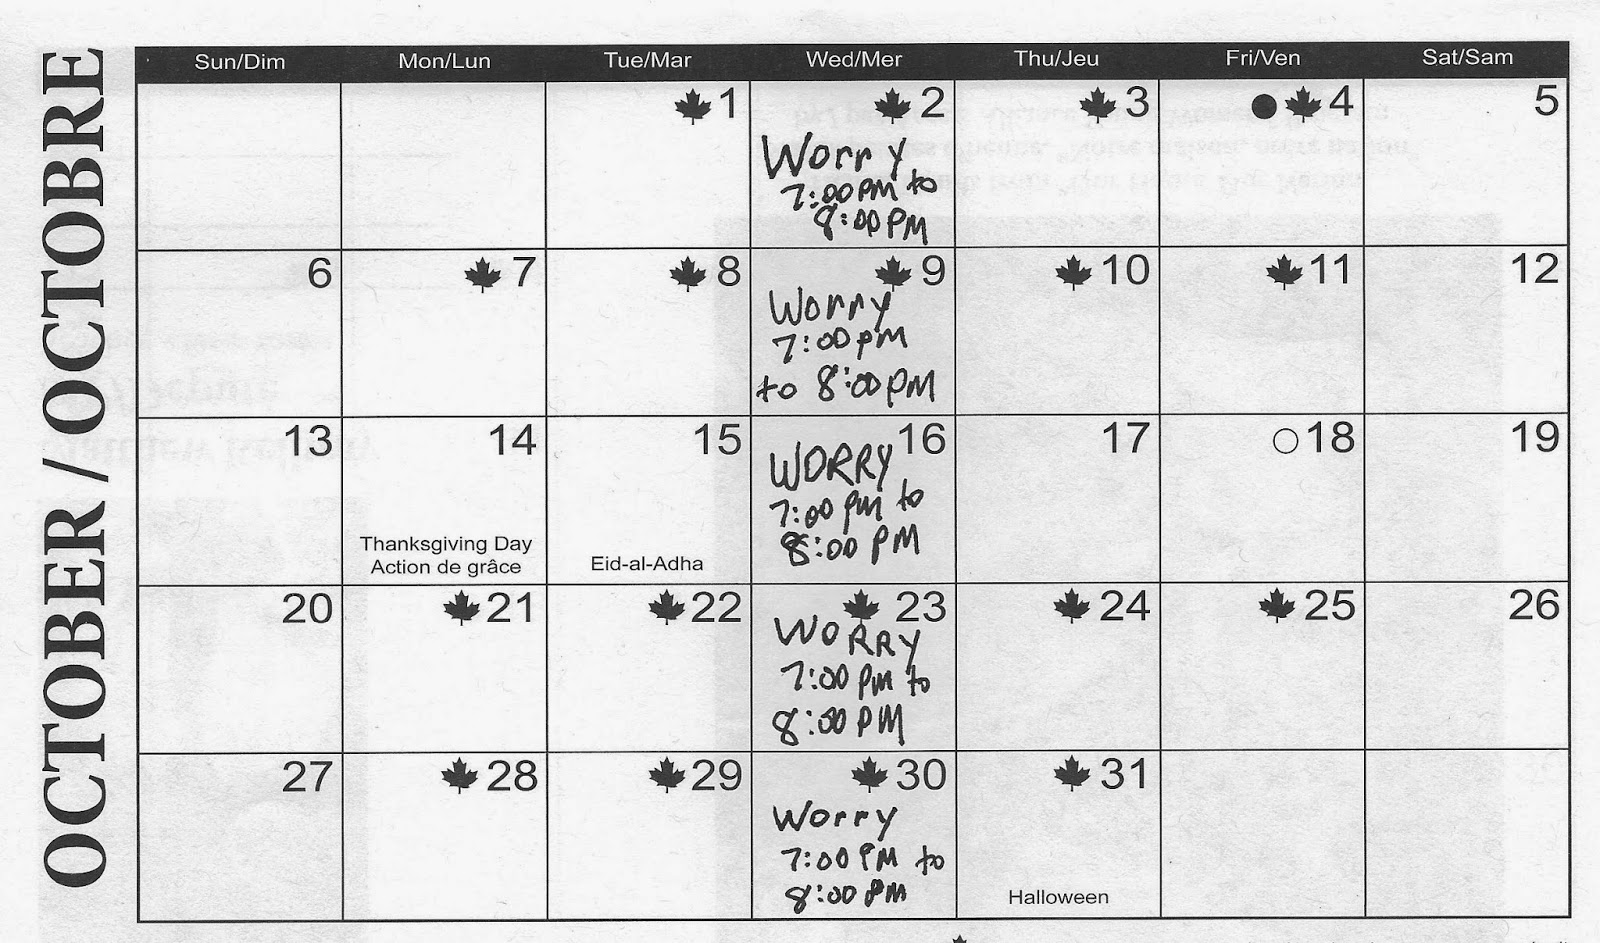 OCTOBER / OCTOBRE
Sun/Dim Mon/Lun Tue/Mar Wed/Mer Thu/Jeu Fri/Ven Sat/Sam
1 2 3 4 5
Worry
7:00PM to
8:00PM
6 7 8 9 10 11 12
Worry
7:00PM
to 8:00PM
13 14 15 16 17 18 19
WORRY
7:00 PM to
8:00 PM
Thanksgiving Day
Action de grâce
Eid-al-Adha
20 21 22 23 24 25 26
WORRY
7:00 PM to
8:00 PM
27 28 29 30 31
Worry
7:00 PM to
8:00 PM
Halloween